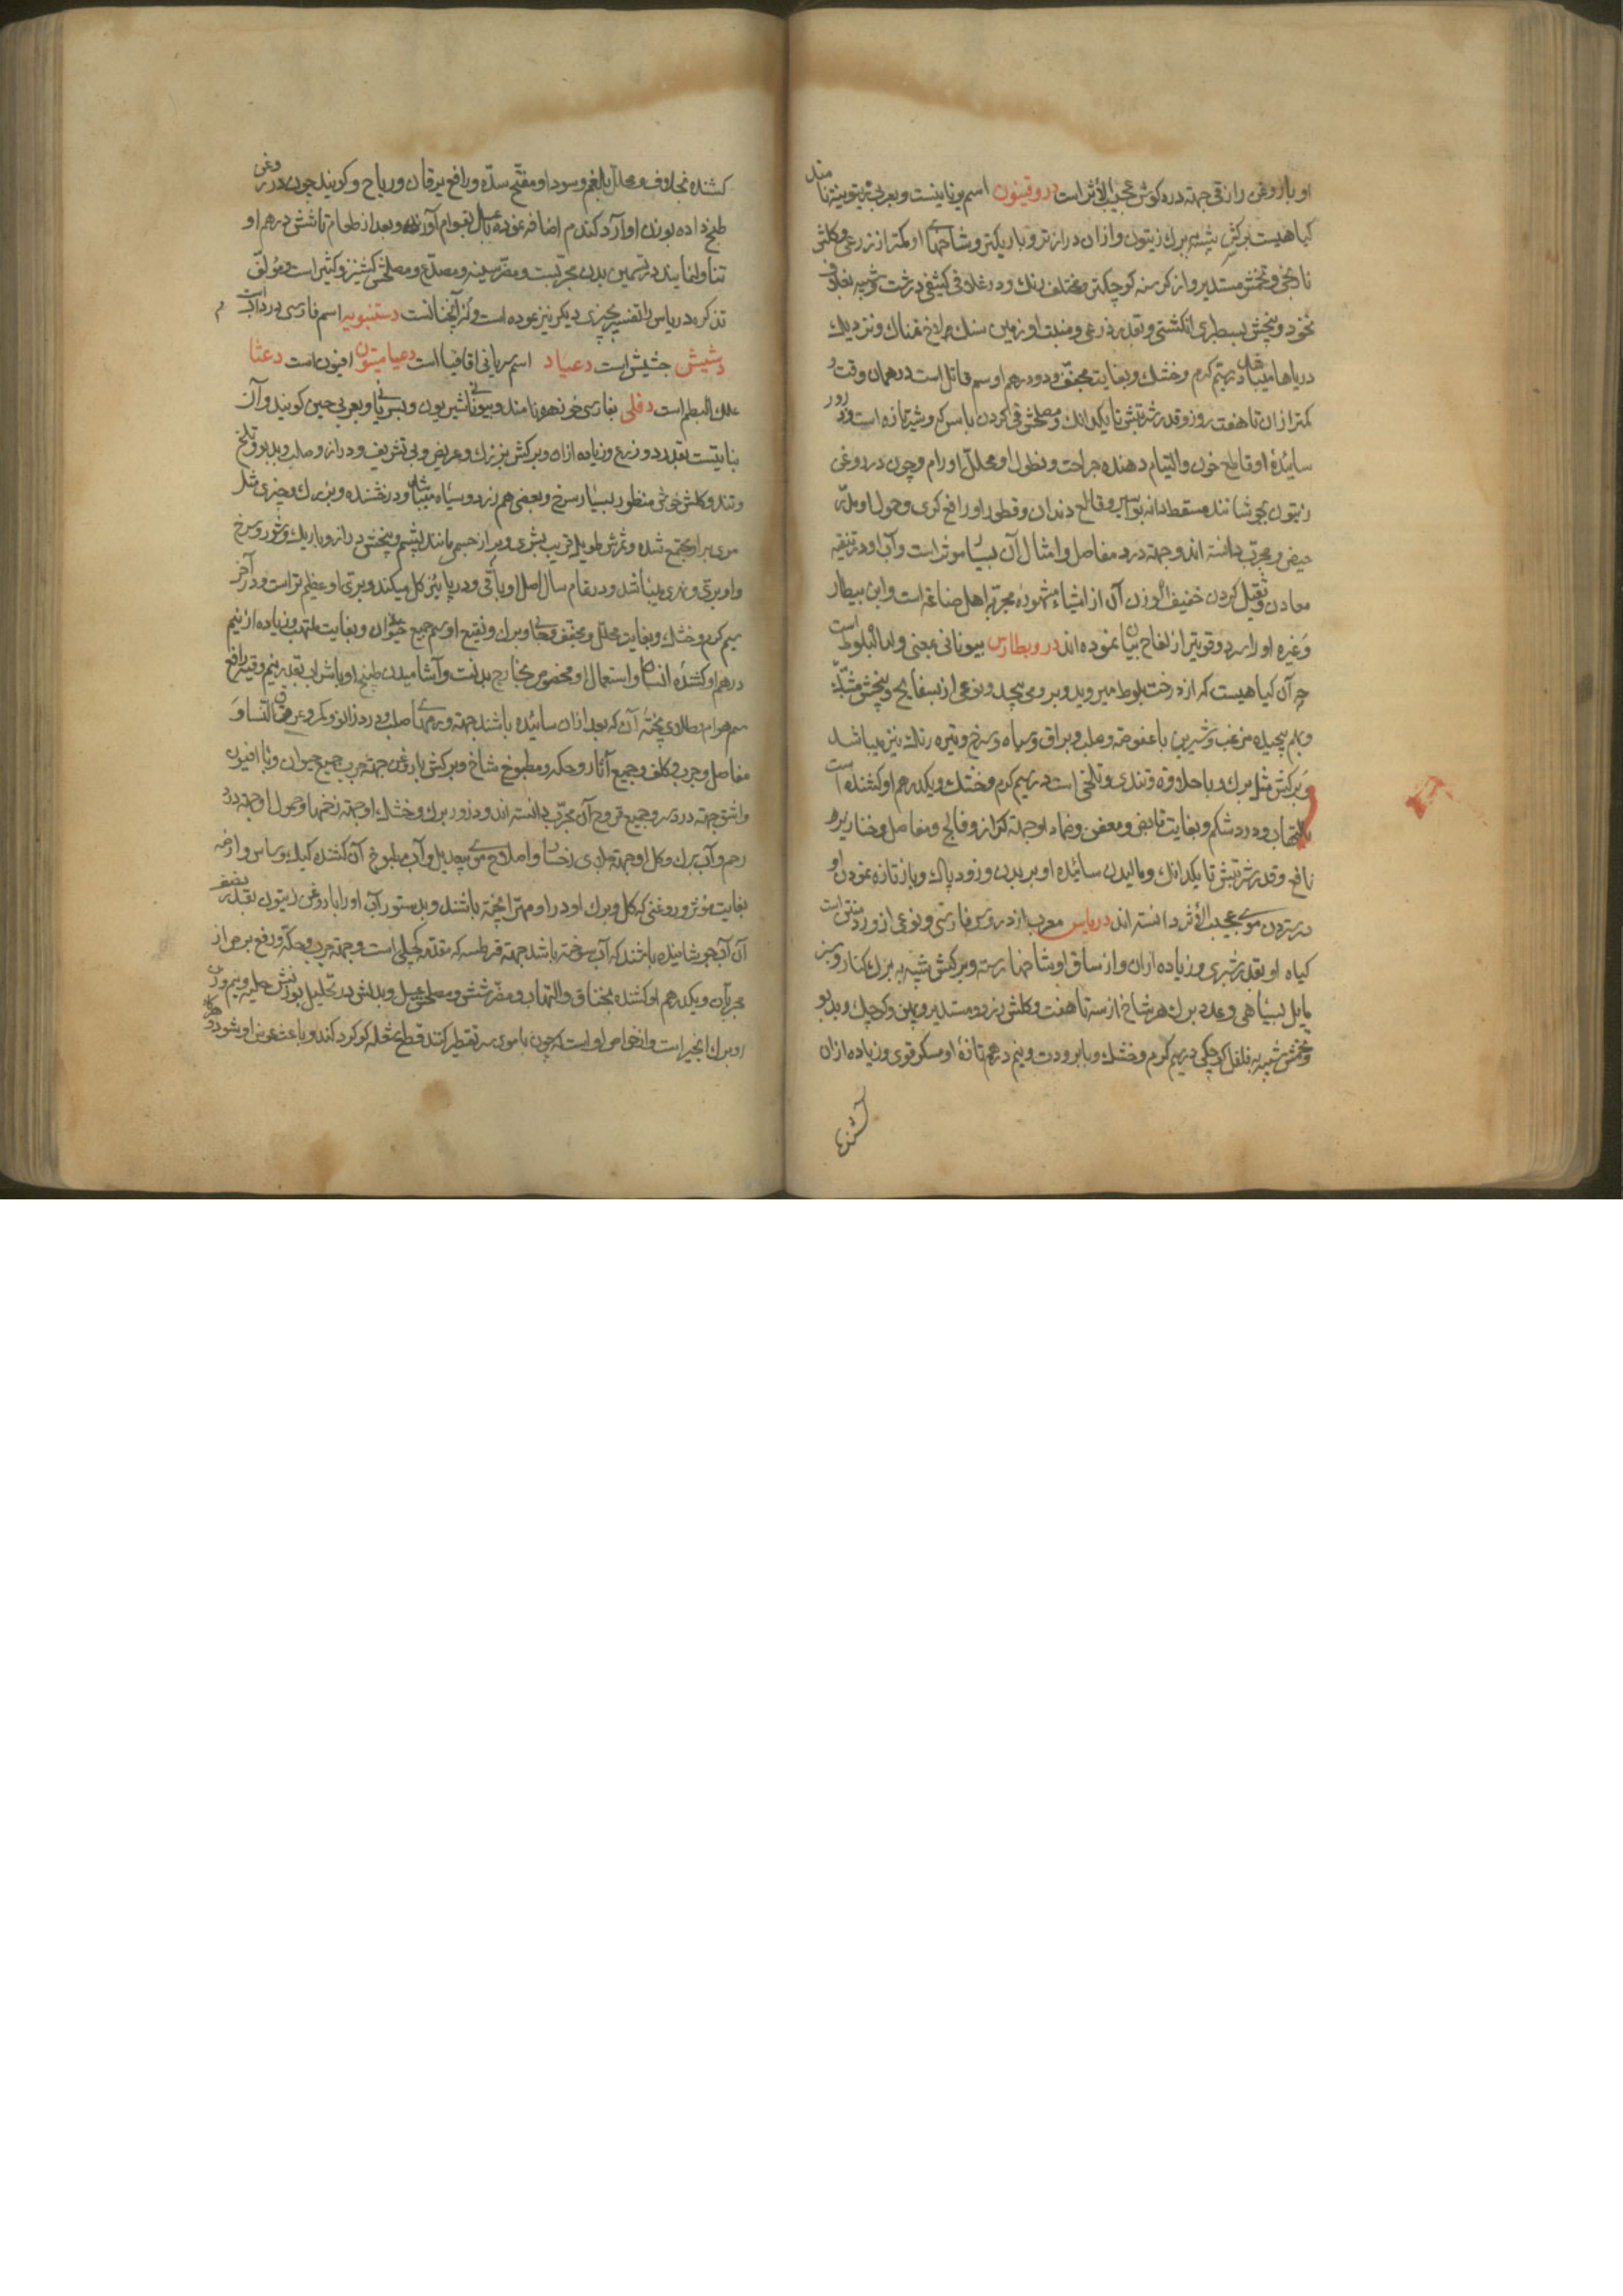 او با روغن رازقی جهة درد کوش عجیب الأثر است دروقنیون اسم یونانیست و بعربی زیتونیه نامند
کیاهیست برکش شبیه ببرك زیتون و از ان درازتر و باریکتر و شاخهای او کمتر از زرعی و کلش
و تخمش مستدیر و از کرسنه کوچکتر و مختلف رنك و در غلافی کثیفی درشت و شبیه بغلاف
نخود و بیخش بسطبری انکشتی و بقدر ذرعی و منبت او زمین سنك نمناك و نزدیك
دریاها میباشد در سیم کرم و خشك و بغایت مجفف و دو درهم او سم قاتل است در همان وقت و
کمتر از ان تا هفت روز و قدر شربتش تا یکدانك و مصلحش قی کردن با سرکه و شیر تازه است
سائیدهٔ او قاطع خون و التیام دهنده جراحت و نطول او محلل اورام و چون در روغن
زیتون بجوشانند مسقط دانه بواسیر و قالع دندان و قطور او رافع کری و حمول او مدر
حیض و مجرب دانسته اند و جهة درد مفاصل و امثال آن بسیار موثر است و آب او در تنقیه
معادن و ثقیل کردن خفیف الوزن آن از اشیاء مشهوره مجربه اهل صناعه است و ابن بیطار
و غیره او را سرد و قویتر از لفاح بیان نموده اند دروبطارس بیونانی بمعنی والد البلوط است
چه آن کیاهیست که از درخت بلوط میروید و برو می پیچد و نوعی از بسفایج و بیخش مشبك
و بهم پیچیده مزغب و شیرین با عفوصة و صلب و براق و سیاه و سرخ و تیره رنك نیز میباشد
و برکش مثل برك و با حلاوة و تندی و تلخی است در سیم کرم و خشك و یکدرهم او کشنده است
بالتهاب و درد شکم و بغایت قابض و معفن و ضماد او جهة کزاز و فالج و مفاصل و خنازیر
نافع و قدر شربتش تا یکدانك و مالیدن سائیده او بر بدن و زود پاك و باز تازه نمودن او
در ستردن موی عجیب الأثر دانسته اند دریاس معرب از دروس فارسی و نوعی از است
کیاه او بقدر شبری و زیاده از ان و از ساق او شاخها رسته و برکش شبیه به برك کنار و سبز
مایل بسیاهی و عدد برك هر شاخ از سه تا هفت و کلش زرد و مستدیر و پهن و کوچك و بدبو
و تخمش شبیه به فلفل کوچکی در سیم کرم و خشك و با برودت و نیم درهم تازهٔ او مسکر قوی و زیاده از ان
کشنده
کشنده بخلاف و محلل بلغم و سودا و مفتح سده و رافع یرقان و ریاح و کویند چون در روغن
طبخ داده بوزن او آرد کندم اضافه نموده با عسل بقوام آورند و بعد از طعام تا شش درهم او
تناول نمایند در تسمین بدن مجربست و مضر سینه و مصدع و مصلحش کشنیز و کثیراست و مؤلف
تذکره دریاس را تفسیر بچیزی دیکر نیز نموده است دستنبویه اسم فارسی است
دشیش جشیش است دعیاد اسم سریانی اقاقیا است دعیامیتون افیون است دعثا
علك البطم است دفلی بفارسی خرزهره نامند و بیونانی نثیریون و بسریانی و بعربی حبن کویند و آن
نباتیست بقدر دو زرع و زیاده از ان و برکش بزرك و عریض و بی تشریف و دراز و صلب و بدبو و تلخ
و تند و کلش خوش منظور بسیار سرخ و بعضی هم زرد و سیاه میباشد و درخشنده و بزرك و چیزی مثل
موی بر او مجتمع شده و ثمرش طویل قریب بشبری و پر از جسم مانند پشم و بیخش دراز و باریك و شور و سرخ
و او بری و نهری میباشد و در تمام سال اصل او باقی و در پاییز کل میکند و بری او عظیم تر است و در آخر
سیم کرم و خشك و بغایت محلل و مجفف و جالی و برك و نقیع او سم جمیع حیوان و بغایت ملتهب و زیاده از نیم
درهم او کشندهٔ انسان و استعمال او مخصوص بخارج بدنست و آشامیدن طبخ او با شراب بقدر نیم وقیه رافع
سم هوام و طلای پختهٔ آن که بعد از ان سائیده باشند جهة ورمهای صلب و درد زانو و کمر و عرق النسا و
مفاصل و جرب و کلف و جمیع آثار و حکه و مطبوخ شاخ و برکش با روغن جهة جرب جمیع حیوان و با افیون
و اشق جهة درد سر و جمیع قروح آن مجرب دانسته اند و ذرور برك و خشك او جهة زخمها و حمول او جهة درد
رحم و آب برك و کل او جهة نیکوی رخسار و اصلاح موی بیعدیل و آب مطبوخ آن کشنده کیك و ساس و ارضه
بغایت مؤثر و روغنی که کل و برك او در او مهرا پخته باشند و بدستور آب او را با روغن زیتون بقدر نصف
آن آب جوشانیده باشند که آب سوخته باشد جهة قرطسه که مقدمه کچلی است و جهة جرب و حکه و رفع برص از
مجربان و یکدرهم او کشنده بخناق و التهاب و مضر شش و مصلحش عسل و بدلش در تحلیل بوزنش حلبه و نیم وزن
او برك انجیر است و از خواص او است که چون با موی سر تقطیر کنند قطع شعله کوکرد کند و باعث غوص او شود